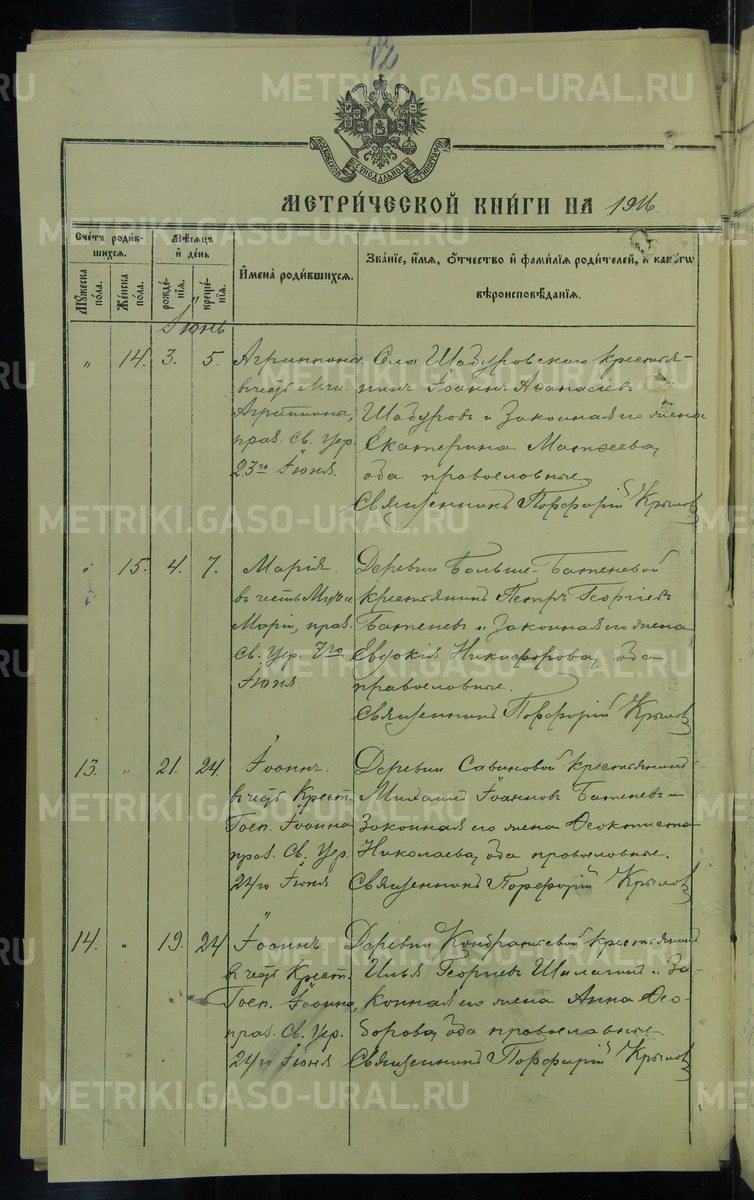 METRIKI.GASO-URAL.RU
МОСКОВСКОЙ СѴНОДАЛЬНОЙ ТИПОГРАФІИ
МЕТРИ́ЧЕСКОЙ КНИ́ГИ НА 1916.
Счетъ роди́вшихся.
Мꙋжеска по́ла.
Же́нска по́ла.
Мѣ́сяцъ и҆ де́нь
рожде́нїѧ.
креще́нїѧ.
И҆мена̀ роди́вшихся.
Зва́нїе, и҆́мѧ, ѻ҆́тчество и҆ фами́лїѧ роди́телей, и҆ како́гѡ вѣроисповѣ́данїѧ.
Іюнь
" 14. 3. 5.
Агриппина
въ честь Мчи.
Агриппины,
праз. Св. Цер.
23го Іюня.
Села Шадуровскаго крестья-
нинъ Іоаннъ Аѳанасіевъ
Шадуровъ и законная его жена
Екатерина Матѳеева,
оба православные
Священникъ Порфирій Крыловъ
" 15. 4. 7.
Марія.
въ честь Муч.
Маріи, праз.
Св. Цер. 7го
Іюня.
Деревни Больше-Батеневой
крестьянинъ Петръ Георгіевъ
Батеневъ и законная его жена
Евдокія Никифорова, оба
православные.
Священникъ Порфирій Крыловъ
13. " 21. 24.
Іоаннъ.
въ честь Крест.
Госп. Іоанна
праз. Св. Цер.
24го Іюня
Деревни Савиновой крестьянинъ
Михаилъ Іоанновъ Батеневъ и
законная его жена Ѳеоктиста
Николаева, оба православные.
Священникъ Порфирій Крыловъ
14. " 19. 24
Іоаннъ.
въ честь Крест.
Госп. Іоанна,
праз. Св. Цер.
24го Іюня
Деревни Кондратьевой крестьянинъ
Илья Георгіевъ Шалагинъ и за-
конная его жена Анна Ѳео-
дорова, оба православные
Священникъ Порфирій Крыловъ